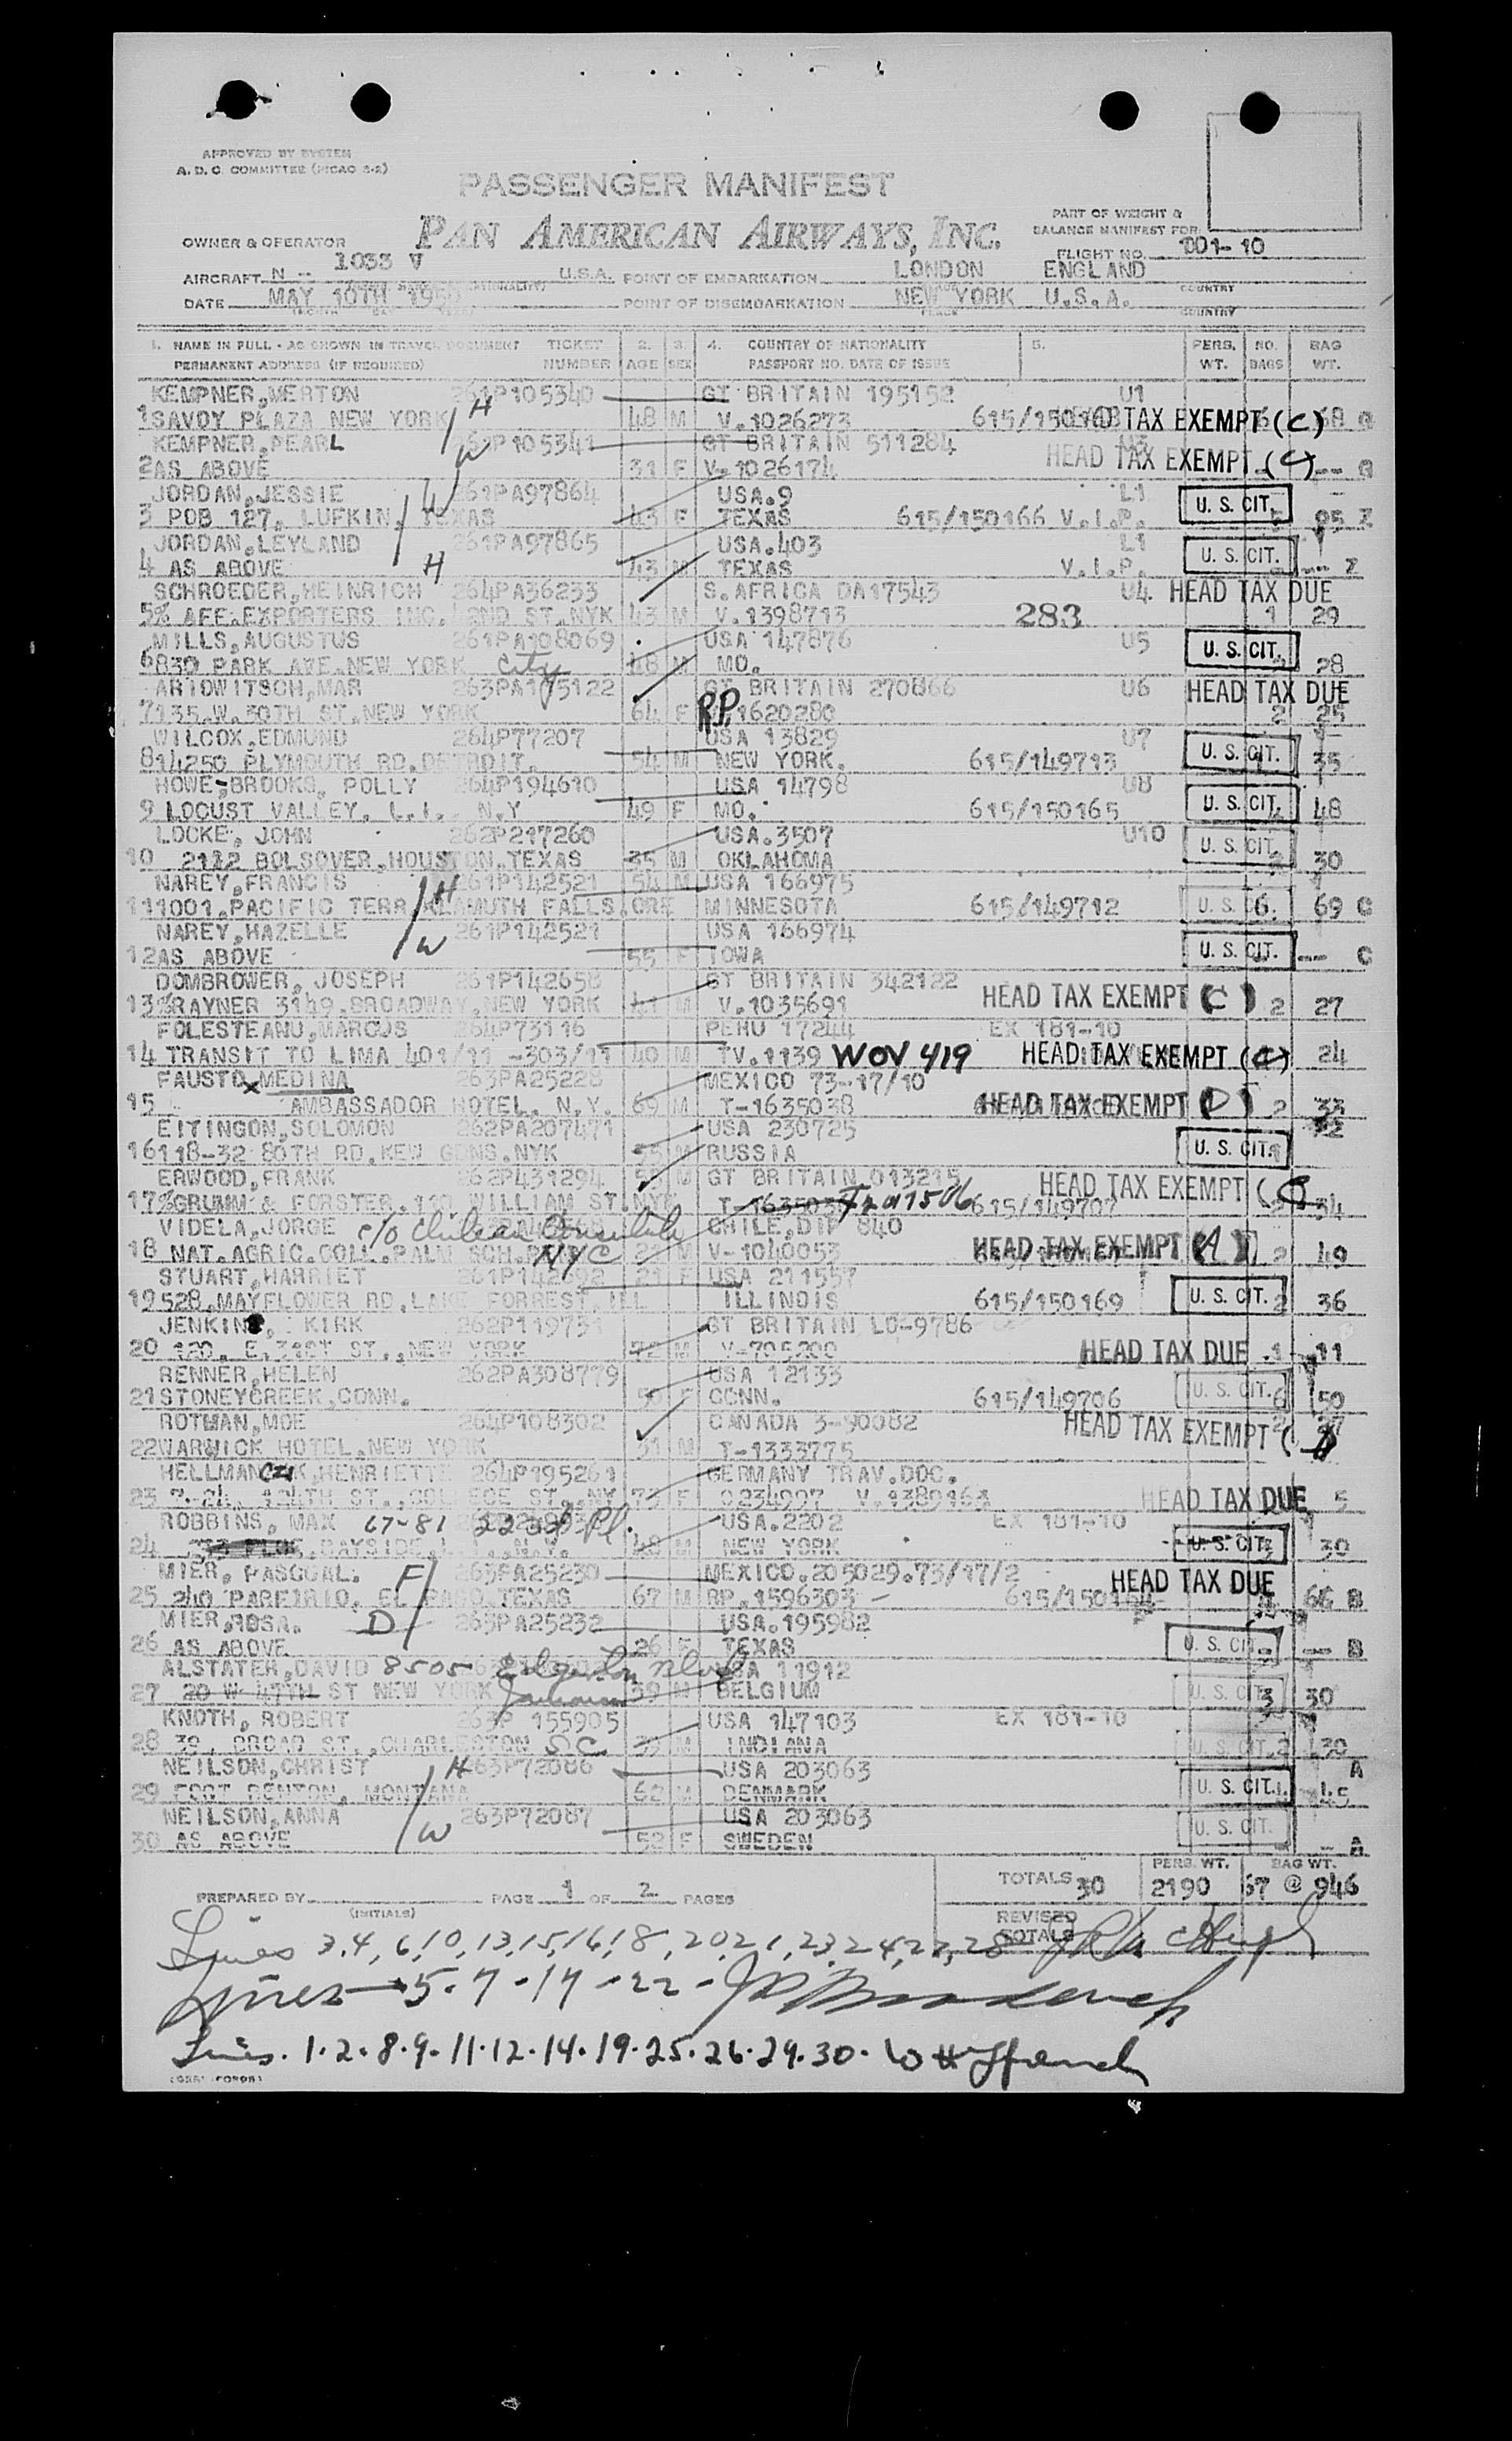 APPROVED BY SYSTEM
A. D. C. COMMITTEE (PICAO 2-2)
PASSENGER MANIFEST
PAN AMERICAN AIRWAYS, INC.
PART OF WEIGHT &
BALANCE MANIFEST FOR
OWNER & OPERATOR
FLIGHT NO. 001-10
AIRCRAFT N - 1033 V U.S.A. POINT OF EMBARKATION LONDON ENGLAND
DATE MAY 10TH 1950 POINT OF DISEMBARKATION NEW YORK U.S.A.
PLACE COUNTRY
1. NAME IN FULL - AS SHOWN IN TRAVEL DOCUMENT TICKET 2. 3. 4. COUNTRY OF NATIONALITY 5. PERS. NO. BAG
PERMANENT ADDRESS (IF REQUIRED) NUMBER AGE SEX PASSPORT NO. DATE OF ISSUE WT. BAGS WT.
KEMPNER,MERTON 261P105340 GT BRITAIN 195152 U1
1 SAVOY PLAZA NEW YORK H 48 M V.1026273 HEAD TAX EXEMPT (C) 6 68
KEMPNER,PEARL 263P105341 GT BRITAIN 511284
2 AS ABOVE W 31 F V-1026174 HEAD TAX EXEMPT (C) --
JORDAN,JESSIE W 261PA97864 USA.9 L1
3 POB 127, LUFKIN, TEXAS 43 F TEXAS 615/150166 V.I.P. U. S. CIT. 95 Z
JORDAN,LEYLAND 261PA97865 USA.403 L1
4 AS ABOVE H 43 M TEXAS V.I.P. U. S. CIT. -- Z
SCHROEDER,HEINRICH 264PA36233 S.AFRICA DA17543 U4 HEAD TAX DUE
5 % AFE.EXPORTERS INC. ST.NYK 43 M V.1398713 283 1 29
MILLS,AUGUSTUS 261PA108069 USA 147876 U5
6 830 PARK AVE.NEW YORK City 48 M MO. U. S. CIT. 28
ARIOWITSCH,MAR 263PA105122 GT BRITAIN 270866 U6 HEAD TAX DUE
7 135.W.30TH ST.NEW YORK 64 F RP.1620280 2 25
WILCOX,EDMUND 264P77207 USA 13829 U7
8 14250 PLYMOUTH RD.DETROIT. 54 M NEW YORK. 615/149713 U. S. CIT. 35
HOWE-BROOKS, POLLY 264P194610 USA 14798 U8
9 LOCUST VALLEY, L.I. N.Y 49 F MO. 615/150165 U. S. CIT. 48
LOCKE, JOHN 262P217260 USA.3507 U10
10 2112 BOLSOVER,HOUSTON.TEXAS 35 M OKLAHOMA U. S. CIT. 2 30
NAREY,FRANCIS H 261P142521 54 M USA 166975
11 1001.PACIFIC TERR KLAMUTH FALLS.ORE MINNESOTA 615/149712 U. S. 6 69 C
NAREY,HAZELLE 261P142521 USA 166974
12 AS ABOVE W 55 F IOWA U. S. CIT. -- C
DOMBROWER, JOSEPH 261P142658 GT BRITAIN 342122
13 %RAYNER 3149.BROADWAY.NEW YORK 41 M V.1035691 HEAD TAX EXEMPT (C) 2 27
FOLESTEANU,MARCUS 264P73116 PERU 17244 EX 181-10
14 TRANSIT TO LIMA 401/11 -303/11 40 M TV.1139 WOV 419 HEAD TAX EXEMPT (C) 24
FAUSTO x MEDINA 263PA25228 MEXICO 73-17/10
15 AMBASSADOR HOTEL. N.Y. 69 M T-1635038 HEAD TAX EXEMPT (D) 2 33
EITINGON,SOLOMON 262PA207471 USA 230725
16 118-32 80TH RD.KEW GDNS.NYK 55 M RUSSIA U. S. CIT.
ERWOOD,FRANK 262P431294 53 GT BRITAIN 013215 HEAD TAX EXEMPT (C)
17 %GRUMM & FORSTER.110 WILLIAM ST.NYK 615/149707 2 34
VIDELA,JORGE c/o Chilean Consulate CHILE,DIP 840
18 NAT.AGRIC.COLL.PALM SCH. NYC M V-1040053 HEAD TAX EXEMPT (A) 2 49
STUART,HARRIET 21 F USA 211557
19 528,MAYFLOWER RD,LAKE FORREST.ILL ILLINOIS 615/150169 U. S. CIT. 2 36
JENKINS, KIRK 262P119731 GT BRITAIN LO-9786
20 120. E.31ST ST.,NEW YORK 72 M V-705200 HEAD TAX DUE 1 11
RENNER,HELEN 262PA308779 USA 12133
21 STONEYCREEK,CONN. 50 F CONN. 615/149706 U. S. CIT. 6 50
ROTMAN,MOE 264P108302 CANADA 3-90082
22 WARWICK HOTEL.NEW YORK 31 M T-1333775 HEAD TAX EXEMPT
HELLMANCZIK,HENRIETTE 264P195261 GERMANY TRAV.DOC.
23 124TH ST.,COLLEGE ST.,NY 73 F 0234997 V.1380163 HEAD TAX DUE 5
ROBBINS, MAX 67-81 223rd Pl. USA.2202 EX 181-10
24 BAYSIDE, N.Y. 48 M NEW YORK U. S. CIT. 30
MIER, PASCUAL. F 263PA25230 MEXICO.205029.73/17/2
25 240 PORFIRIO, EL PASO.TEXAS 67 M RP.1596303 - HEAD TAX DUE 66 B
MIER,ROSA. D 263PA25232 USA.195982
26 AS ABOVE 26 F TEXAS U. S. CIT. -- B
ALSTATER,DAVID 8505 USA 11912
27 20 W 47TH ST NEW YORK 39 M BELGIUM U. S. CIT. 3 30
KNOTH, ROBERT 263P 155905 USA 147103 EX 181-10
28 39, BROAD ST.,CHARLESTON S.C. M INDIANA U. S. CIT. 2 30
NEILSON,CHRIST H 263P72086 USA 203063 A
29 FORT BENTON, MONTANA 62 M DENMARK U. S. CIT. 45
NEILSON,ANNA 263P72087 USA 203063
30 AS ABOVE W 52 F SWEDEN U. S. CIT. - A
TOTALS 30 PERS. WT. 2190 BAG WT. 67 @ 946
PREPARED BY (INITIALS) PAGE 1 OF 2 PAGES
REVISED TOTALS
Lines 3,4,6,10,13,15,16,18,20,21,23,24,27,28
Lines 5-7-17-22-
Lines. 1-2-8-9-11-12-14-19-25-26-29-30-